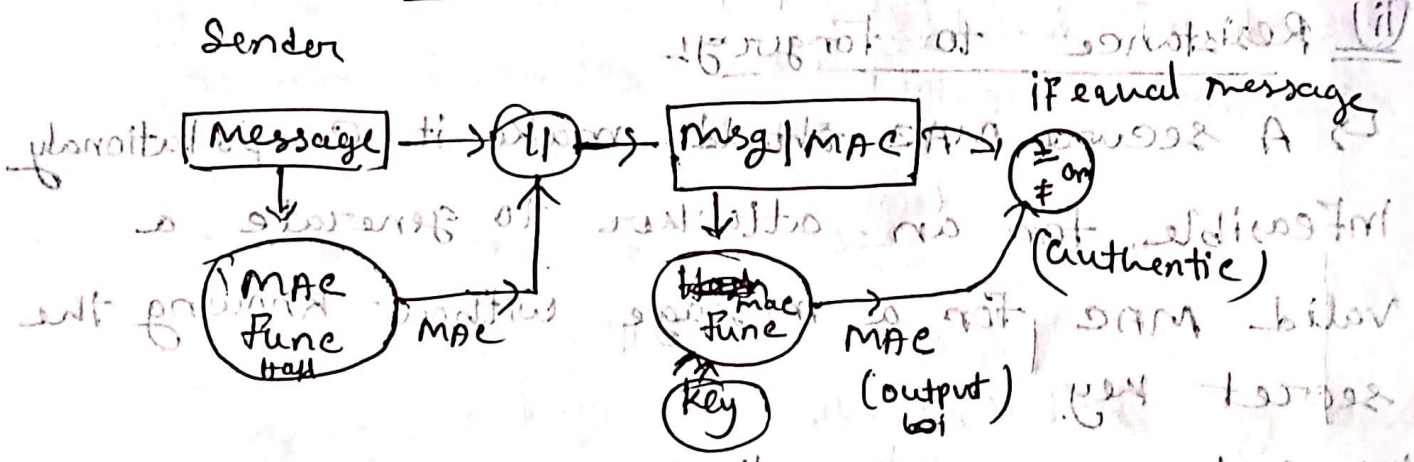 Sender
if equal message
Message
||
Msg | MAC
= or ≠
(authentic)
MAC
Func
MAC
mac
func
MAC
(output)
Key